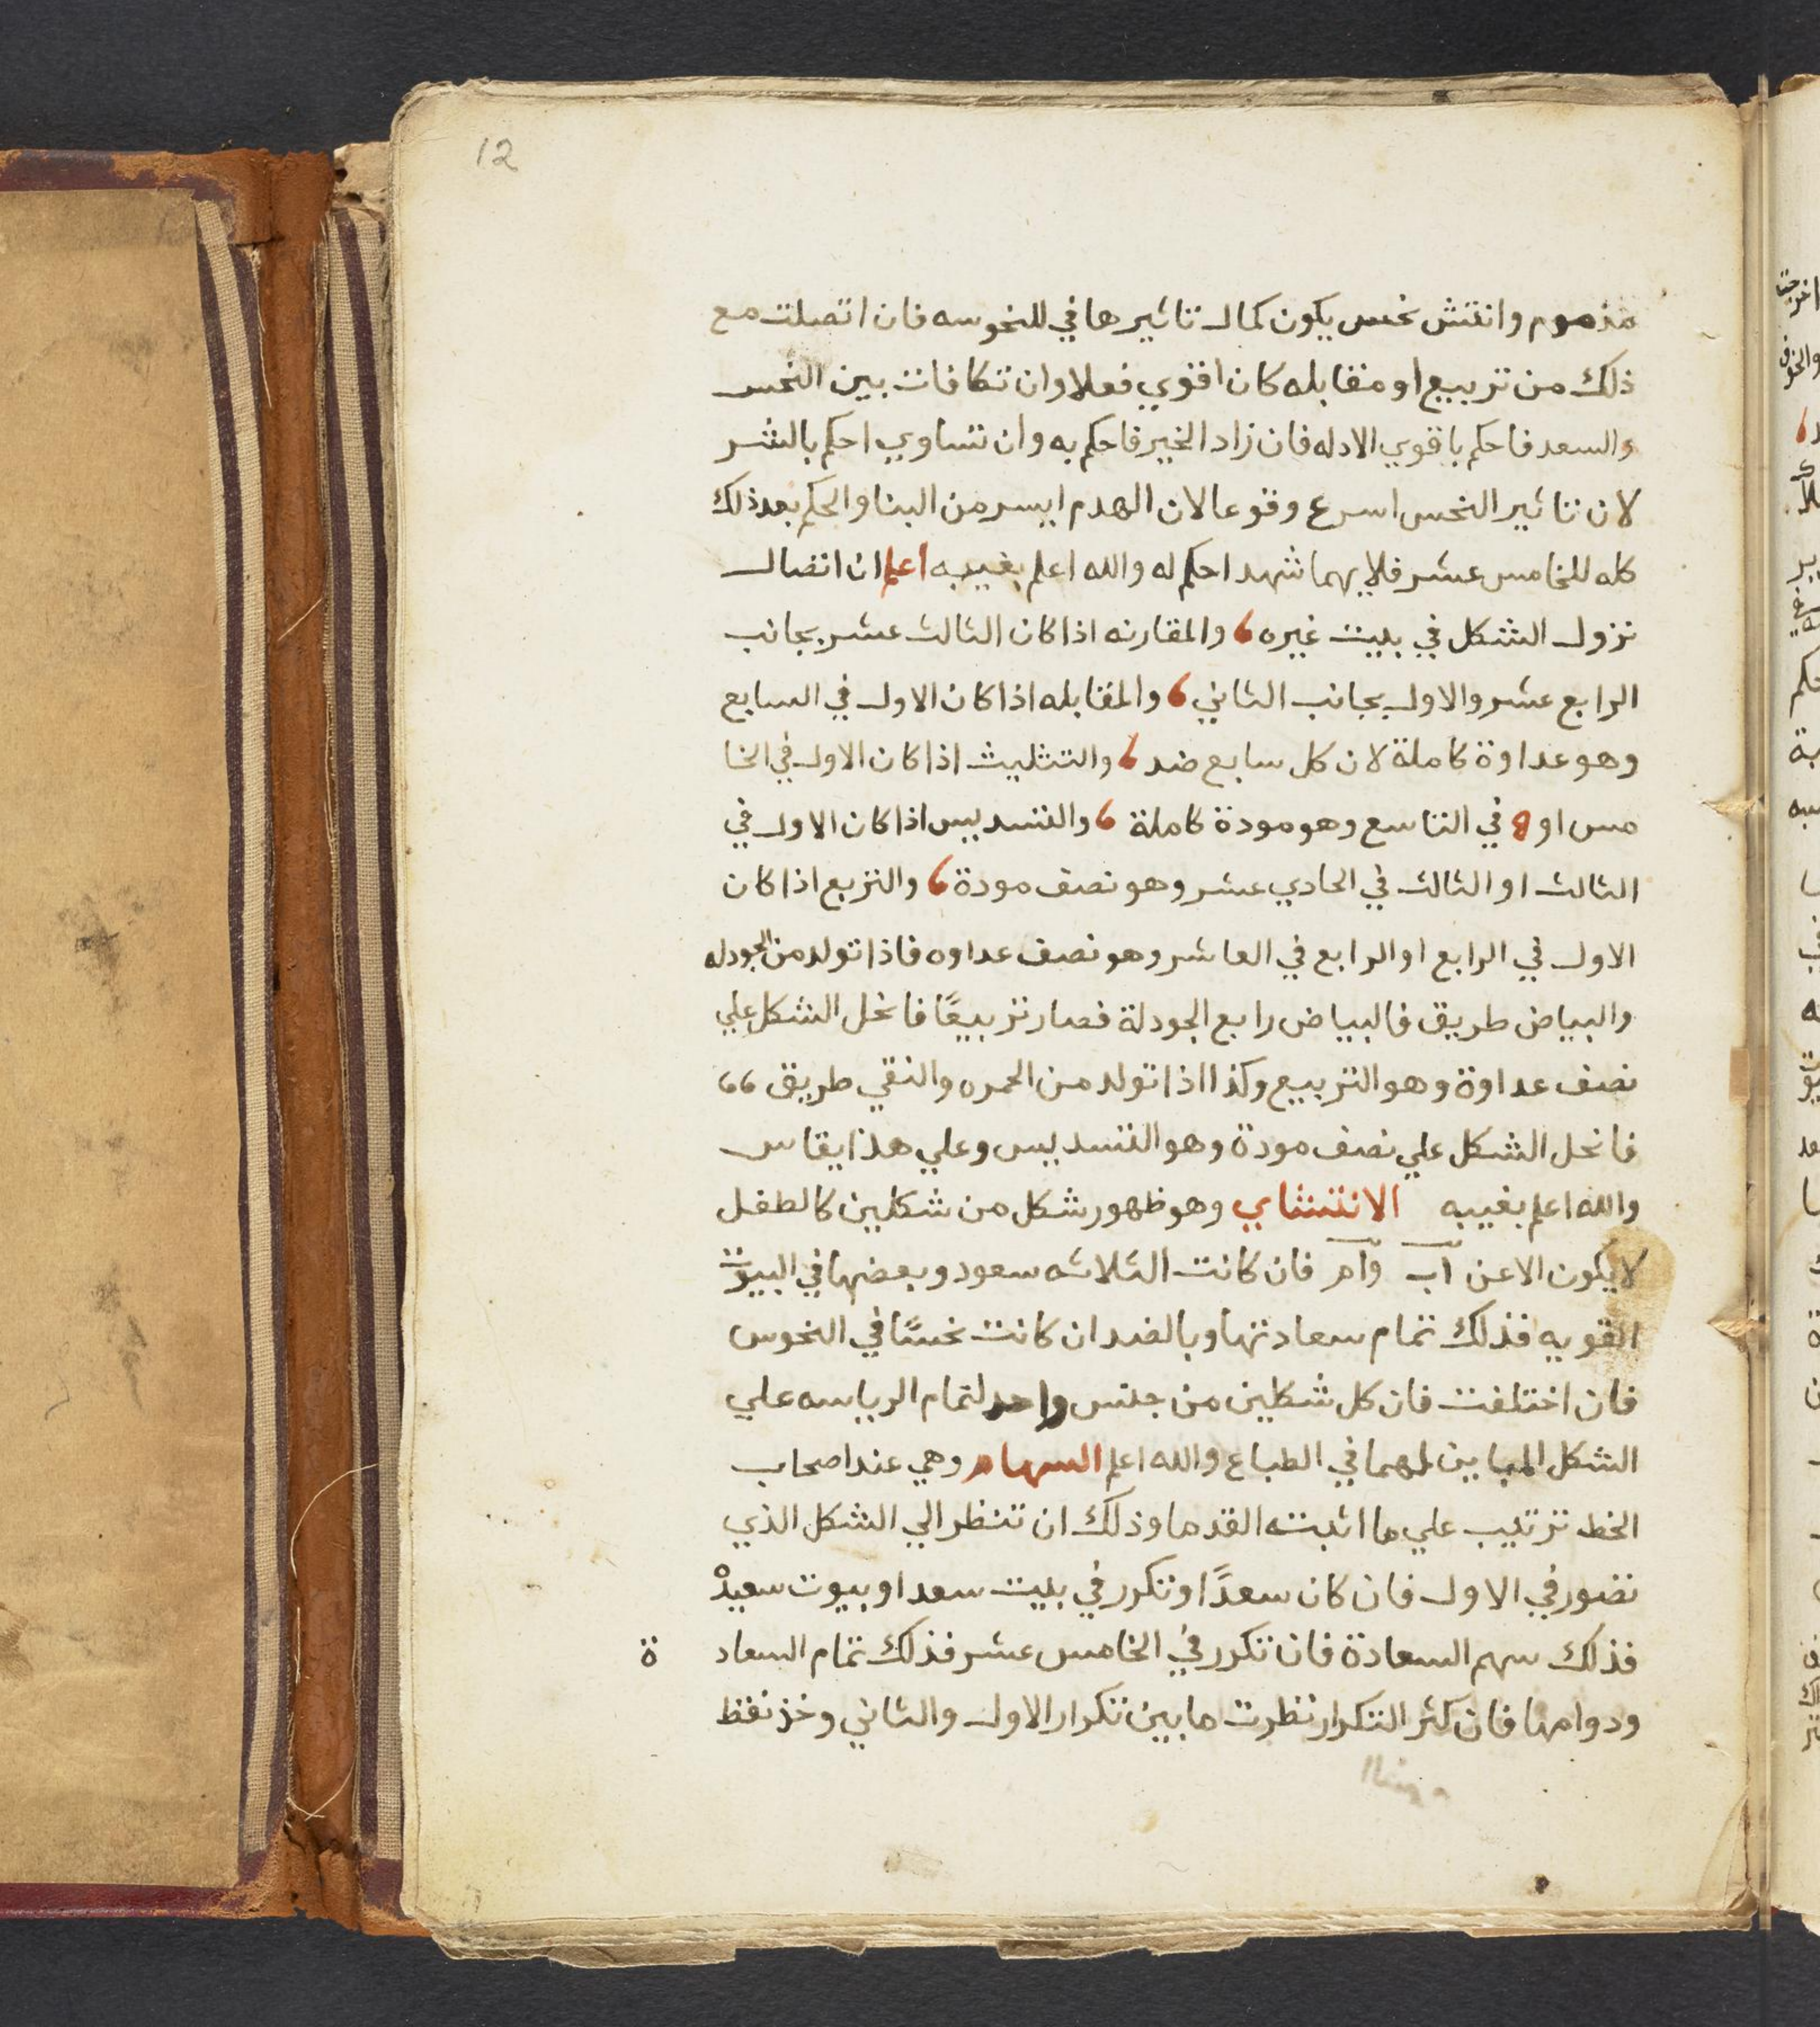 12
مذموم وانتش نحس يكون كمال تاثيرها في للنحوسه فان اتصلت مع
ذلك من تربيع او مقابله كان اقوي فعلا وان تكافات بين النحس
والسعد فاحكم باقوي الادله فان زاد الخير فاحكم به وان تساوي احكم بالشر
لان تاثير النحس اسرع وقوعا لان الهدم ايسر من البنا والحكم بعد ذلك
كله للخامس عشر فلايهما شهد احكم له والله اعلم بغيبه اعلم ان اتصال
نزول الشكل في بيت غيره ، والمقارنه اذا كان الثالث عشر بجانب
الرابع عشر والاول بجانب الثاني ، والمقابله اذا كان الاول في السابع
وهو عداوة كاملة لان كل سابع ضد ، والتثليث اذا كان الاول في الخا
مس او في التاسع وهو مودة كاملة ، والتسديس اذا كان الاول في
الثالث او الثالث في الحادي عشر وهو نصف مودة ، والتربع اذا كان
الاول في الرابع او الرابع في العاشر وهو نصف عداوه فاذا تولد من الجودله
والبياض طريق فالبياض رابع الجودلة فصار تربيعًا فانحل الشكل علي
نصف عداوة وهو التربيع وكذا اذا تولد من الحمره والنقي طريق ،،
فانحل الشكل علي نصف مودة وهو التسديس وعلي هذا يقاس
والله اعلم بغيبه الانتشاي وهو ظهور شكل من شكلين كالطفل
لا يكون الا عن اب وام فان كانت الثلاثه سعود وبعضها في البيوت
القويه فذلك تمام سعادتها وبالضد ان كانت نحسًا في النحوس
فان اختلفت فان كل شكلين من جنس واحد لتمام الرياسه علي
الشكل المباين لهما في الطباع والله اعلم السهام وهي عند اصحاب
الخط ترتيب علي ما اثبته القدما وذلك ان تنظر الي الشكل الذي
تصور في الاول فان كان سعدًا وتكرر في بيت سعد او بيوت سعيدْ
فذلك سهم السعادة فان تكرر في الخامس عشر فذلك تمام السعاد ة
ودوامها فان كثر التكرار نظرت ما بين تكرار الاول والثاني وخذ نقط